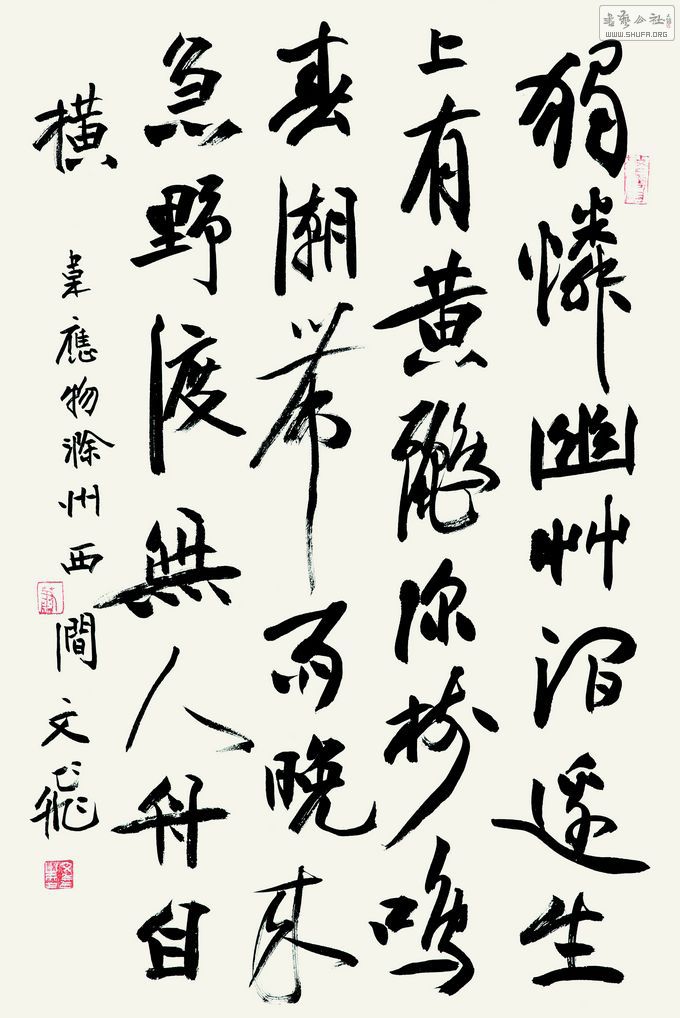 獨憐幽艸澗邊生
上有黃鸝深樹鳴
春潮帶雨晚來
急野渡無人舟自
橫
韋應物滁州西澗文飛
書藝公社
WWW.SHUFA.ORG